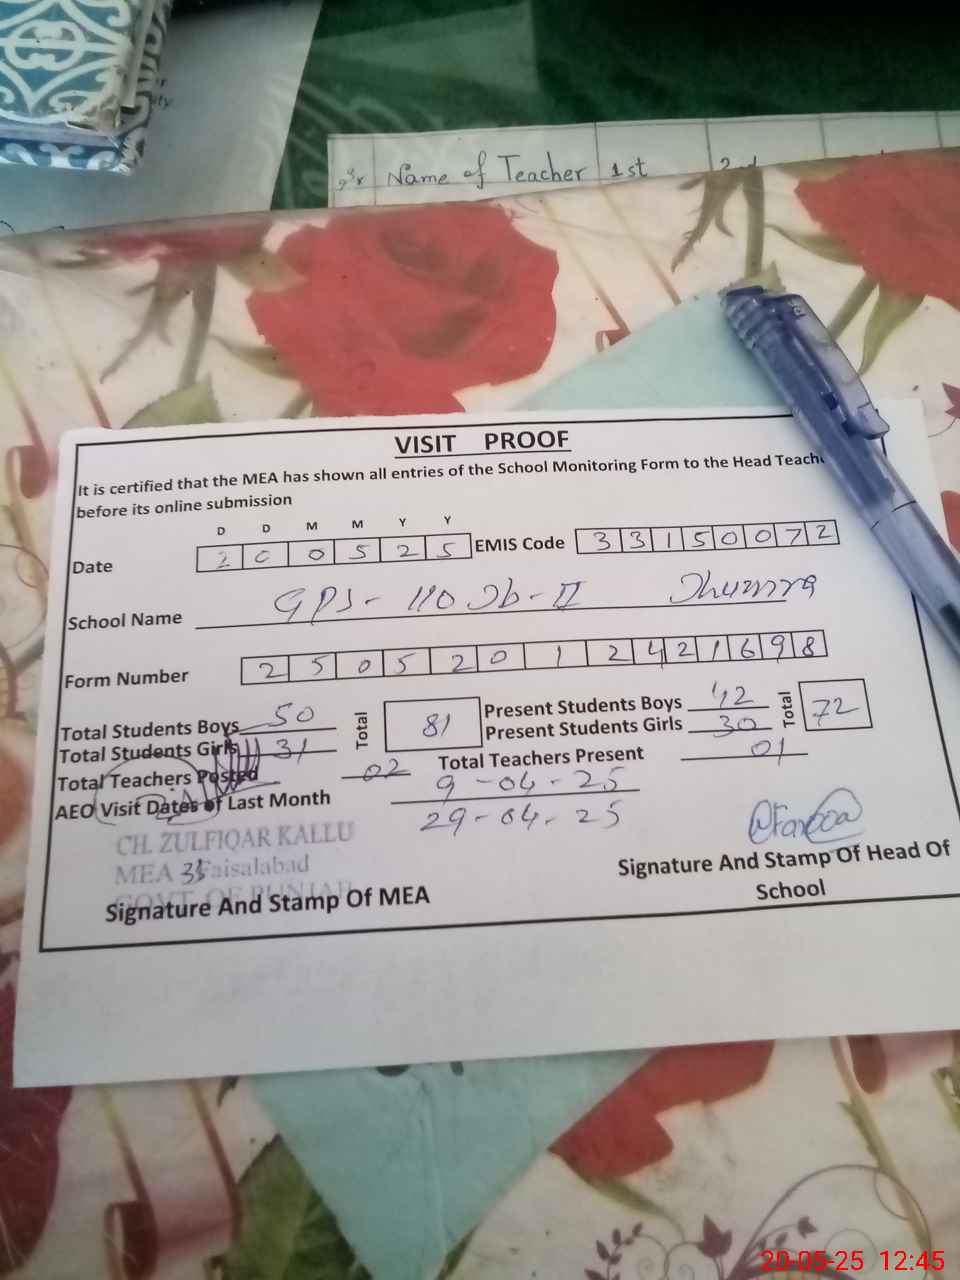 Sr Name of Teacher 1st 2nd
VISIT PROOF
It is certified that the MEA has shown all entries of the School Monitoring Form to the Head Teach
before its online submission
D D M M Y Y
Date 2 0 0 5 2 5 EMIS Code 3 3 1 5 0 0 7 2
School Name GPS- 110 Jb-II Jhumra
Form Number 2 5 0 5 2 0 1 2 4 2 1 6 9 8
Total Students Boys 50 Total 81 Present Students Boys 42 Total 72
Total Students Girls 31 Present Students Girls 30
Total Teachers Posted 02 Total Teachers Present 01
AEO Visit Dates of Last Month 9-04-25
29-04-25
CH. ZULFIQAR KALLU
MEA 35 Faisalabad
GOVT. OF PUNJAB
Signature And Stamp Of MEA
Signature And Stamp Of Head Of
School
20-05-25 12:45